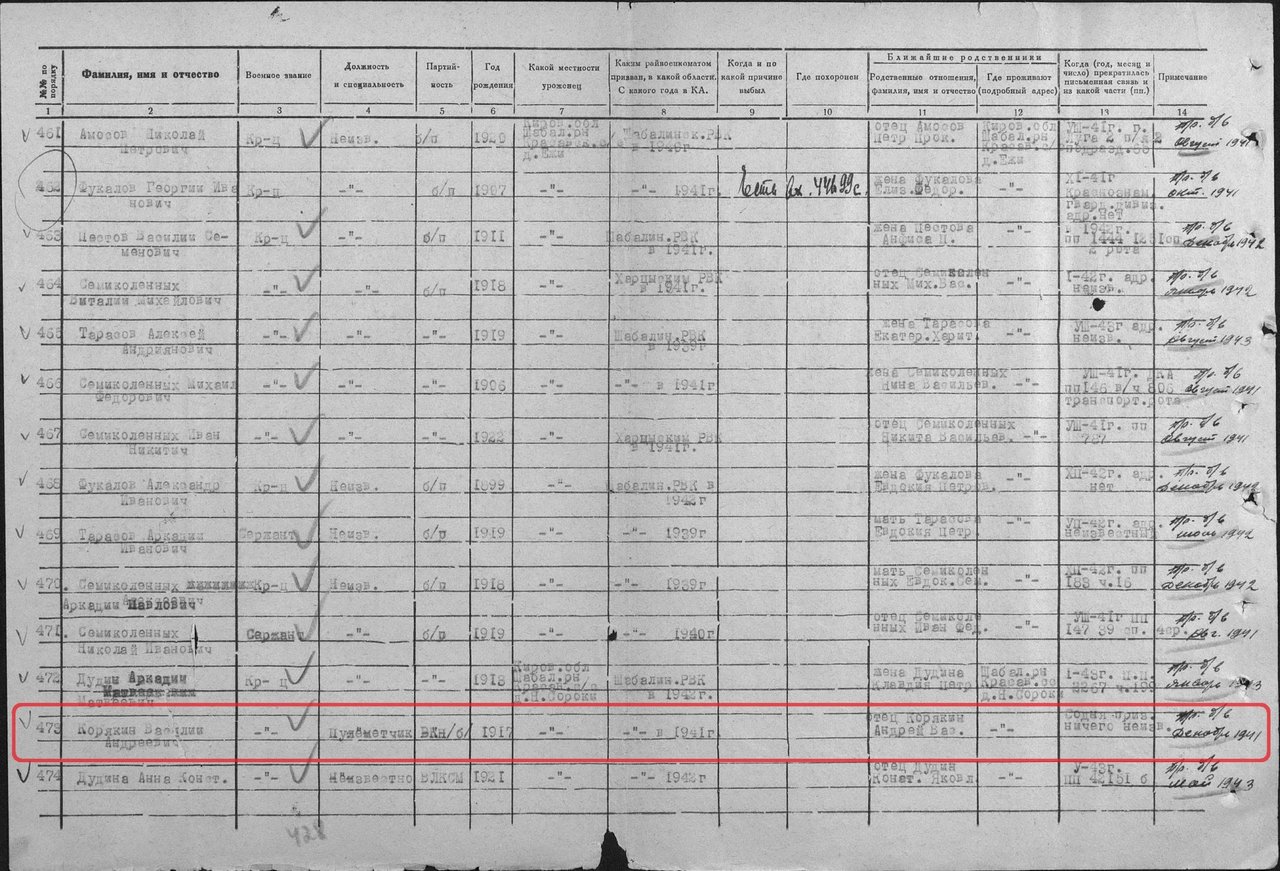 №№ по порядку
Фамилия, имя и отчество
Военное звание
Должность и специальность
Партийность
Год рождения
Какой местности уроженец
Каким райвоенкоматом призван, в какой области. С какого года в КА.
Когда и по какой причине выбыл
Где похоронен
Ближайшие родственники
Родственные отношения, фамилия, имя и отчество
Где проживают (подробный адрес)
Когда (год, месяц и число) прекратилась письменная связь и из какой части (пп.)
Примечание
1 2 3 4 5 6 7 8 9 10 11 12 13 14
461 Амосов Николай Кр-ц Неизв. б/п 1920 Киров.обл Шабал.рн д.Ежи Шабалинск.РВК в 1940г отец Амосов Петр Прок. Киров.обл Шабал.рн д.Ежи УШ-41г. пр. б/б август 1941
Петрович
462 Фукалов Георгии Ива Кр-ц -"- б/п 1907 -"- -"- 1941г. Есть жена Фукалова Елиз.Федор. -"- XI-41г Краснознам. гвард.дивиз. адр.нет пр. б/б окт. 1941
нович
463 Пестов Василии Се- Кр-ц -"- б/п 1911 -"- Шабалин.РВК в 1941г. жена Пестова Анфиса -"- в 1942г. 2 рота пр. б/б декабрь 1942
менович
464 Семиколенных -"- -"- б/п 1918 -"- Харцыским РВК в 1941г. отец Семиколен ных Мих.Вас. -"- I-42г. адр. неизв. пр. б/б 1942
Виталии Михайлович
465 Тарасов Алексей -"- -"- -"- 1919 -"- Шабалин.РВК в 1939г жена Тарасова Екатер.Харит. -"- УШ-43г адр. неизв. пр. б/б август 1943
Андриянович
466 Семиколенных Михаил -"- -"- -"- 1906 -"- -"- в 1941г жена Семиколенных Нина Васильев. -"- УШ-41г. транспорт.рота пр. б/б август 1941
Федорович
467 Семиколенных Иван -"- -"- -"- 1922 -"- Харцыским РВК в 1941г. отец Семиколенных Никита Васильев. -"- УШ-41г. пп 787 пр. б/б август 1941
Никитич
468 Фукалов Александр Кр-ц Неизв. б/п 1899 -"- Шабалин.РВК в 1942г жена Фукалова Евдокия Петров. -"- ХП-42г. адр. нет пр. б/б декабрь 1942
Иванович
469 Тарасов Аркадии Сержант Неизв. б/п 1919 -"- -"- 1939г мать Тарасова Евдокия Петр. -"- УП-42г. адр. неизвестный пр. б/б июль 1942
Иванович
470. Семиколенных Кр-ц Неизв. б/п 1918 -"- -"- 1939г мать Семиколен ных Евдок.Сем. -"- ХП-42г. пп 183 ч.16 пр. б/б декабрь 1942
Аркадии Павлович
471. Семиколенных Саржант -"- б/п 1919 -"- -"- 1940г отец Семиколе нных Иван Фед. -"- УШ-41г пп пр. б/б авг. 1941
Николай Иванович
472 Дудин Аркадии Кр-ц -"- -"- 1918 Киров.обл Шабал.рн д.Н.Сороки Шабалин.РВК в 1942г. жена Дудина Клавдия Петр Шабал.рн д.Н.Сороки I-43г. п.п. пр. б/б январь 1943
Матвеевич
473 Корякин Василии -"- Пулёметчик 1917 -"- -"- в 1941г отец Корякин Андрей Вас. -"- ничего неизв. пр. б/б декабрь 1941
Андреевич
474 Дудина Анна Конст. -"- Неизвестно ВЛКСМ 1921 -"- -"- 1942г отец Дудин Конст. Яковл. -"- У-43г. пп 42151 б пр. б/б май 1943
428